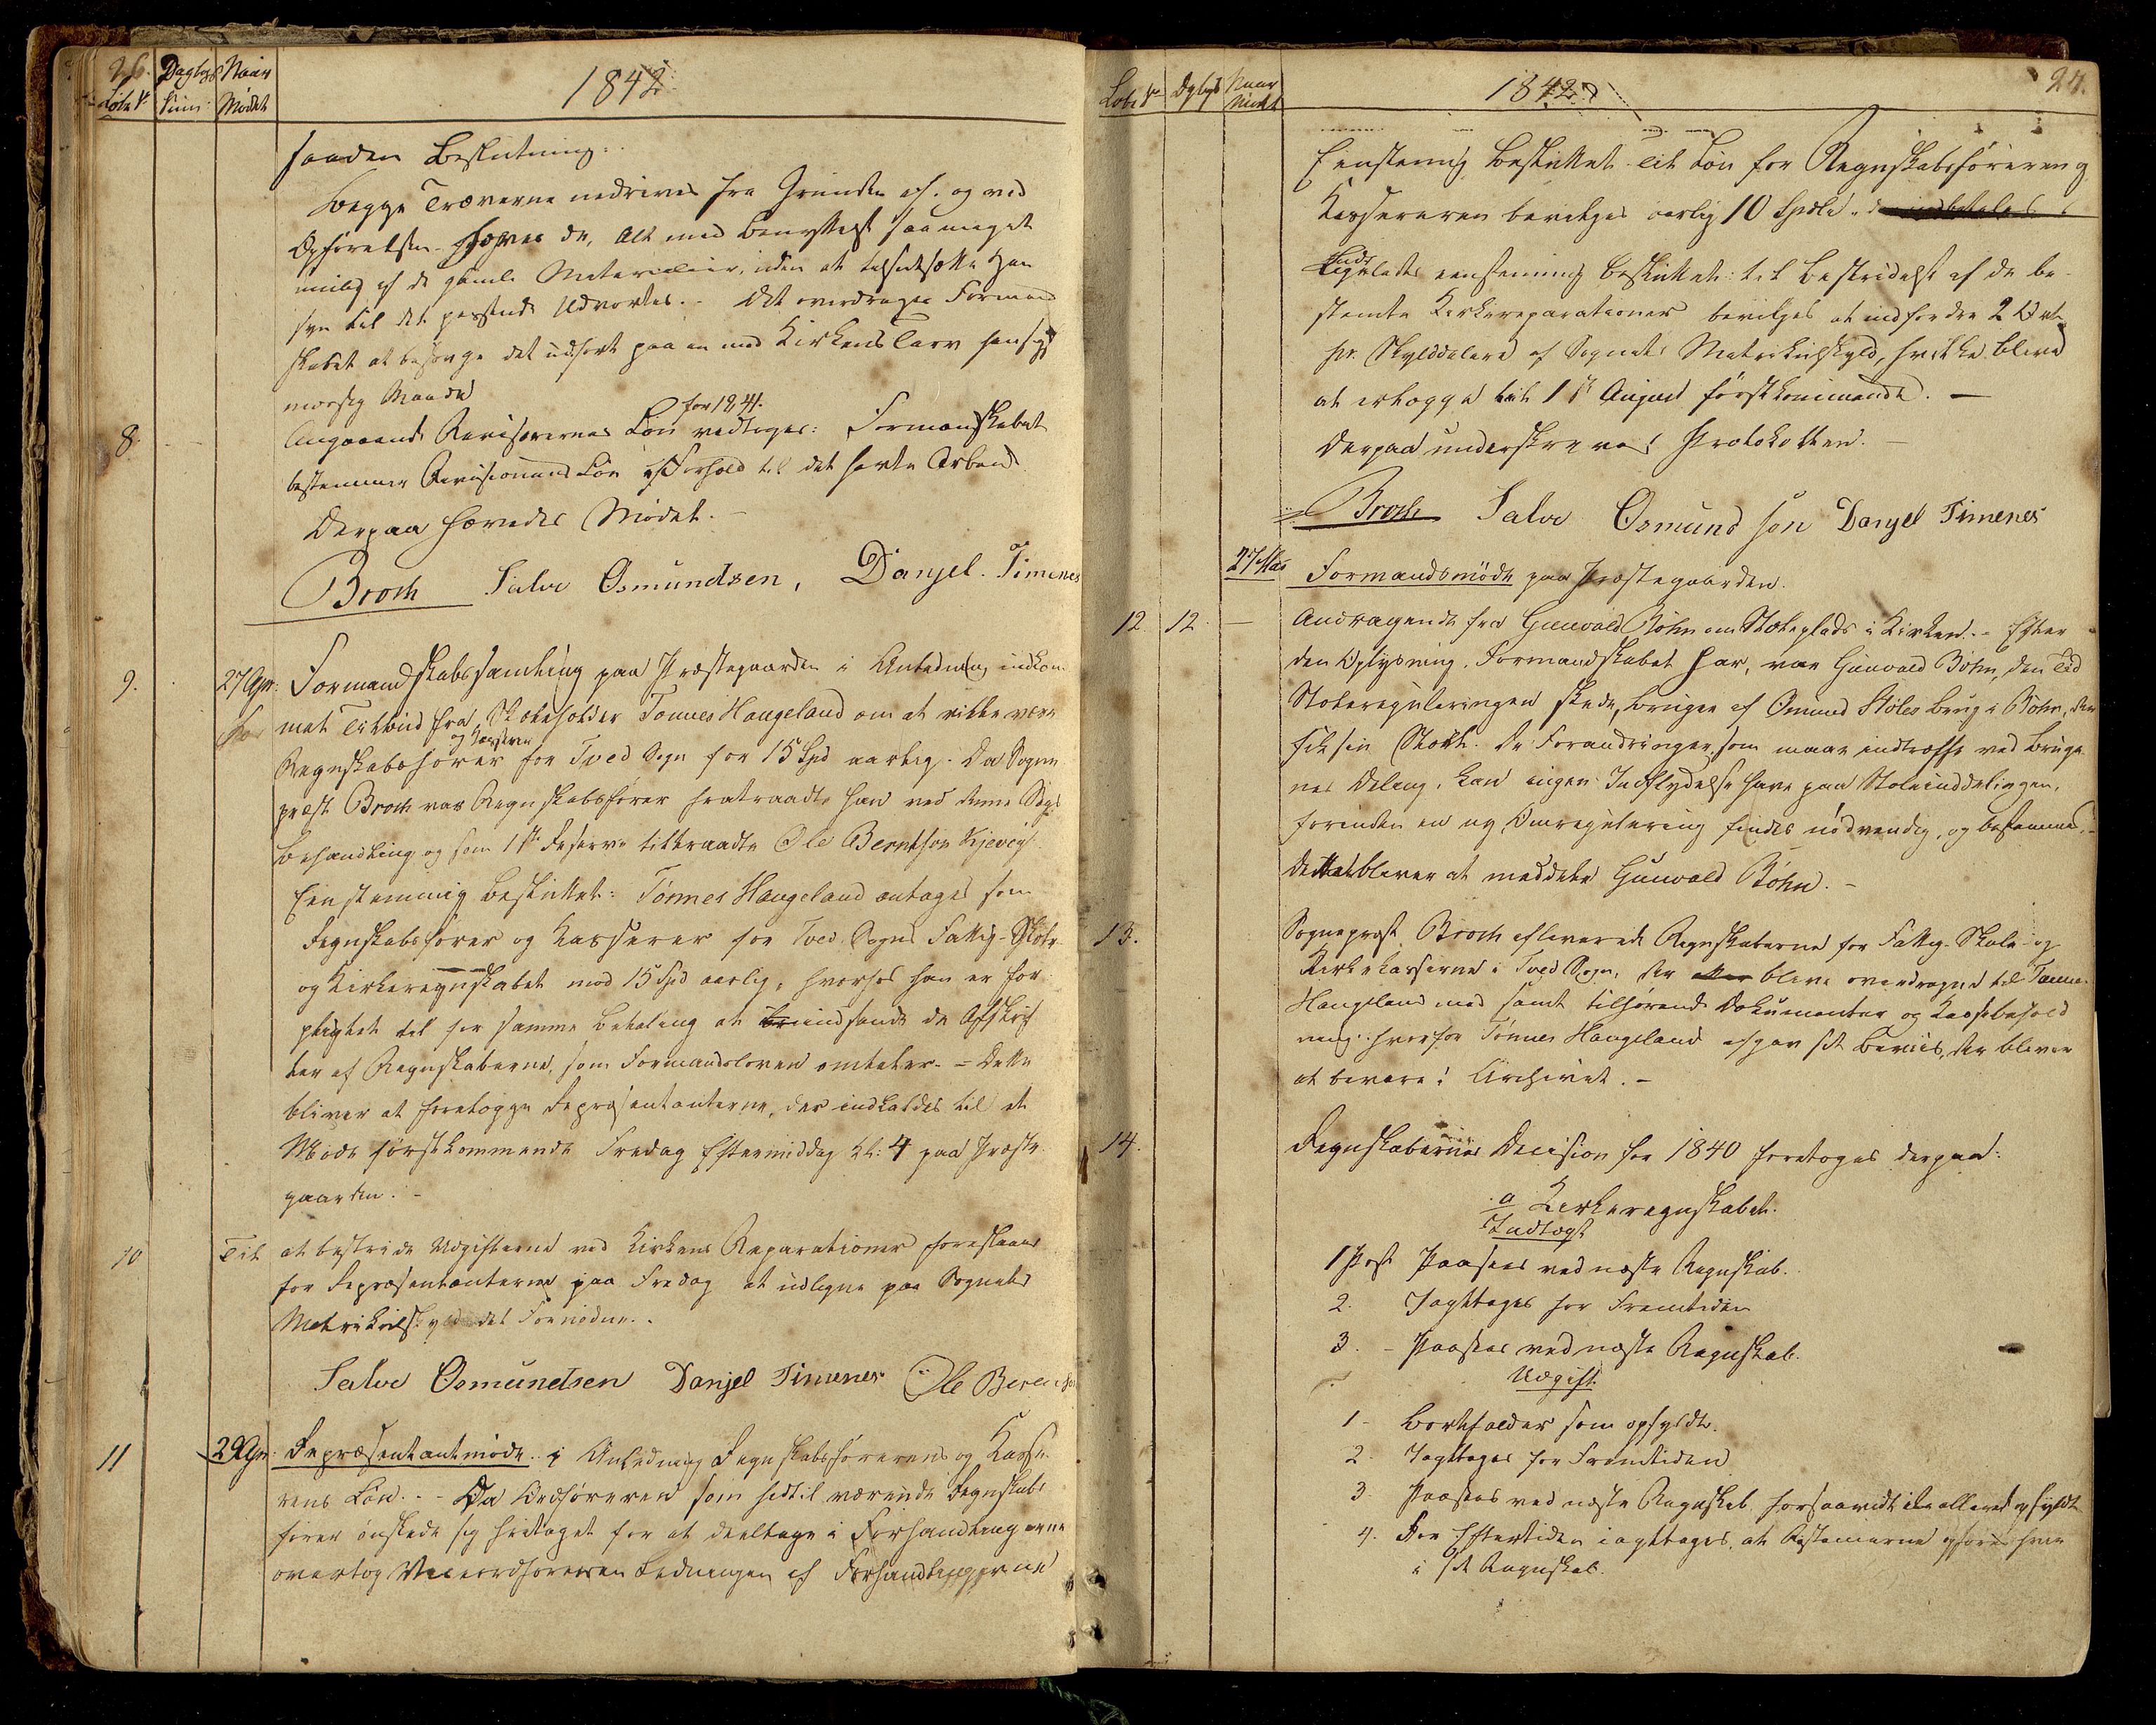 26. Dagbogs Naar
Løbe № Num: Mødet
1842
saaden Beslutning:
Begge Tværerne nedrives fra Grunden af. og ved
Opførelsen hæves de, Alt med Benyttelse saa meget
mulig af de gamle Materialier, uden at tilsidesætte Hen
syn til det passende Udvortes. - Det overdrages Formand
skabet at besørge det udført paa en med Kirkens Tarv hensigts
mæssig Maade
8. Angaaende Revisorernes Løn for 1841. vedtoges: Formandskabet
bestemmer Revisionens Løn i Forhold til det havte Arbeid
Derpaa hævedes Mødet. -
Broch Salve Osmundsen, Danjel. Timenes
9. 27 Apr: Formandskabssamling paa Præstegaarden i Anledning indkom
met Tilbud fra Skoleholder Tønnes Haugeland om at ville være
og Kasserer
Regnskabsfører for Tved Sogn for 15 Spd aarlig. Da Sogne
præst Broch var Regnskabsfører fratraadte han ved denne Sags
Behandling og som 1ste Reserve tiltraadte Ole Berntson Kjevig
Eenstemmig besluttet: Tønnes Haugeland antages som
Regnskabsfører og Kasserer for Tved Sogns Fattig- Skole-
og Kirkeregnskabet mod 15 Spd aarlig, hvorhos han er for
pligtet til for samme Betaling at indsende de Afskrif
ter af Regnskaberne, som Formandsloven omtaler. - Dette
bliver at foretægge Repræsentanterne, der indkaldes til et
Møde førstkommende Fredag Eftermiddag Kl: 4 paa Præste
gaarden. -
10 Til at bestride Udgifterne ved Kirkens Reparationer foreslaaes
for Repræsentanterne paa Fredag at udligne paa Sognets
Matrikulskyld det Fornødne. -
Salve Osmundsen Danjel Timenes Ole Berntson
11 29 Apr: Repræsentantmøde i Anledning Regnskabsførerens og Kasse
rens Løn. - Da Ordføreren som hidtil værende Regnskabs
fører ønskede sig fritaget for at deeltage i Forhandlingerne
overtog Viceordføreren Ledningen af Forhandlingerne
Løbe № Dgbgs Naar
Mødet
1842
27.
Eenstemmig besluttet til Løn for Regnskabsføreren og
Kassereren bevilges aarlig 10 Spdlr
Ligeledes eenstemmig besluttet: til Bestridelse af de be-
stemte Kirkereparationer bevilges at indfordre 2 Ort
pr. Skylddaler af Sognets Matrikulskyld, hvilke bliver
at erlægge til 1ste August førstkommende. -
Derpaa underskreves Protokollen. -
Broch Salve Osmund søn Danjel Timenes
27 Mai Formandsmøde paa Præstegaarden.
12 12 - Andragende fra Gunvald Bøhn om Stoleplads i Kirken. - Efter
den Oplysning. Formandskabet har, var Gunvald Bøhn, den Tid
Stoleregulering en skede, Bruger af Omund Støles Brug i Bøhn, der
fik sin Stoel. De Forandringer, som maae indtræffe ved Bruge
nes Deling, kan ingen Indflydelse have paa Stoleinddelingen,
forinden en ny Omregulering findes nødvendig, og bestemmes. -
Dette bliver at meddele Gunvald Bøhn. -
13. Sognepræst Broch afleverede Regnskaberne for Fattig- Skole- og
Kirkekasserne i Tved Sogn, der bleve overdragne til Tønnes
Haugeland med samt tilhørende Dokumenter og Kassebehold
ning. hvorfor Tønnes Haugeland afgav sit Beviis, der bliver
at bevare i Archivet. -
14. Regnskabernes Decision for 1840 foretoges derpaa:
a Kirkeregnskabet.
Indtægt
1 Post Paasees ved næste Regnskab.
2. Iagttages for Fremtiden
3. - Paasees ved næste Regnskab.
Udgift.
1 - Bortfalder som opfyldt.
2 Iagttages for Fremtiden
3 Paasees ved næste Regnskab forsaavidt ikke allerede opfyldt
4. For Eftertiden iagttages, at Restancerne opføres hver
i sit Regnskab.